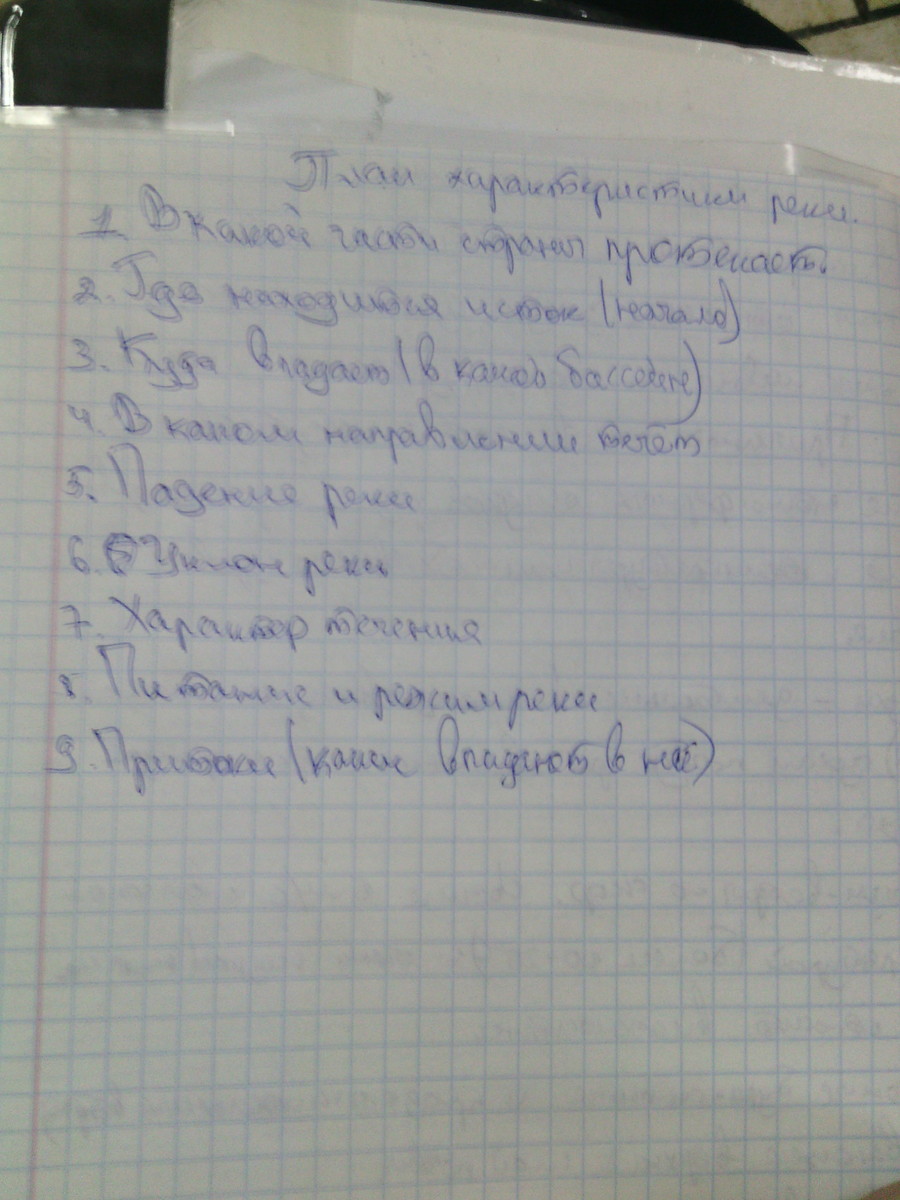 План характеристики реки.
1. В какой части страны протекает.
2. Где находится исток (начало)
3. Куда впадает (в какой бассейн)
4. В каком направлении течёт
5. Падение реки
6. Уклон реки
7. Характер течения
8. Питание и режим реки
9. Притоки (какие впадают в неё)